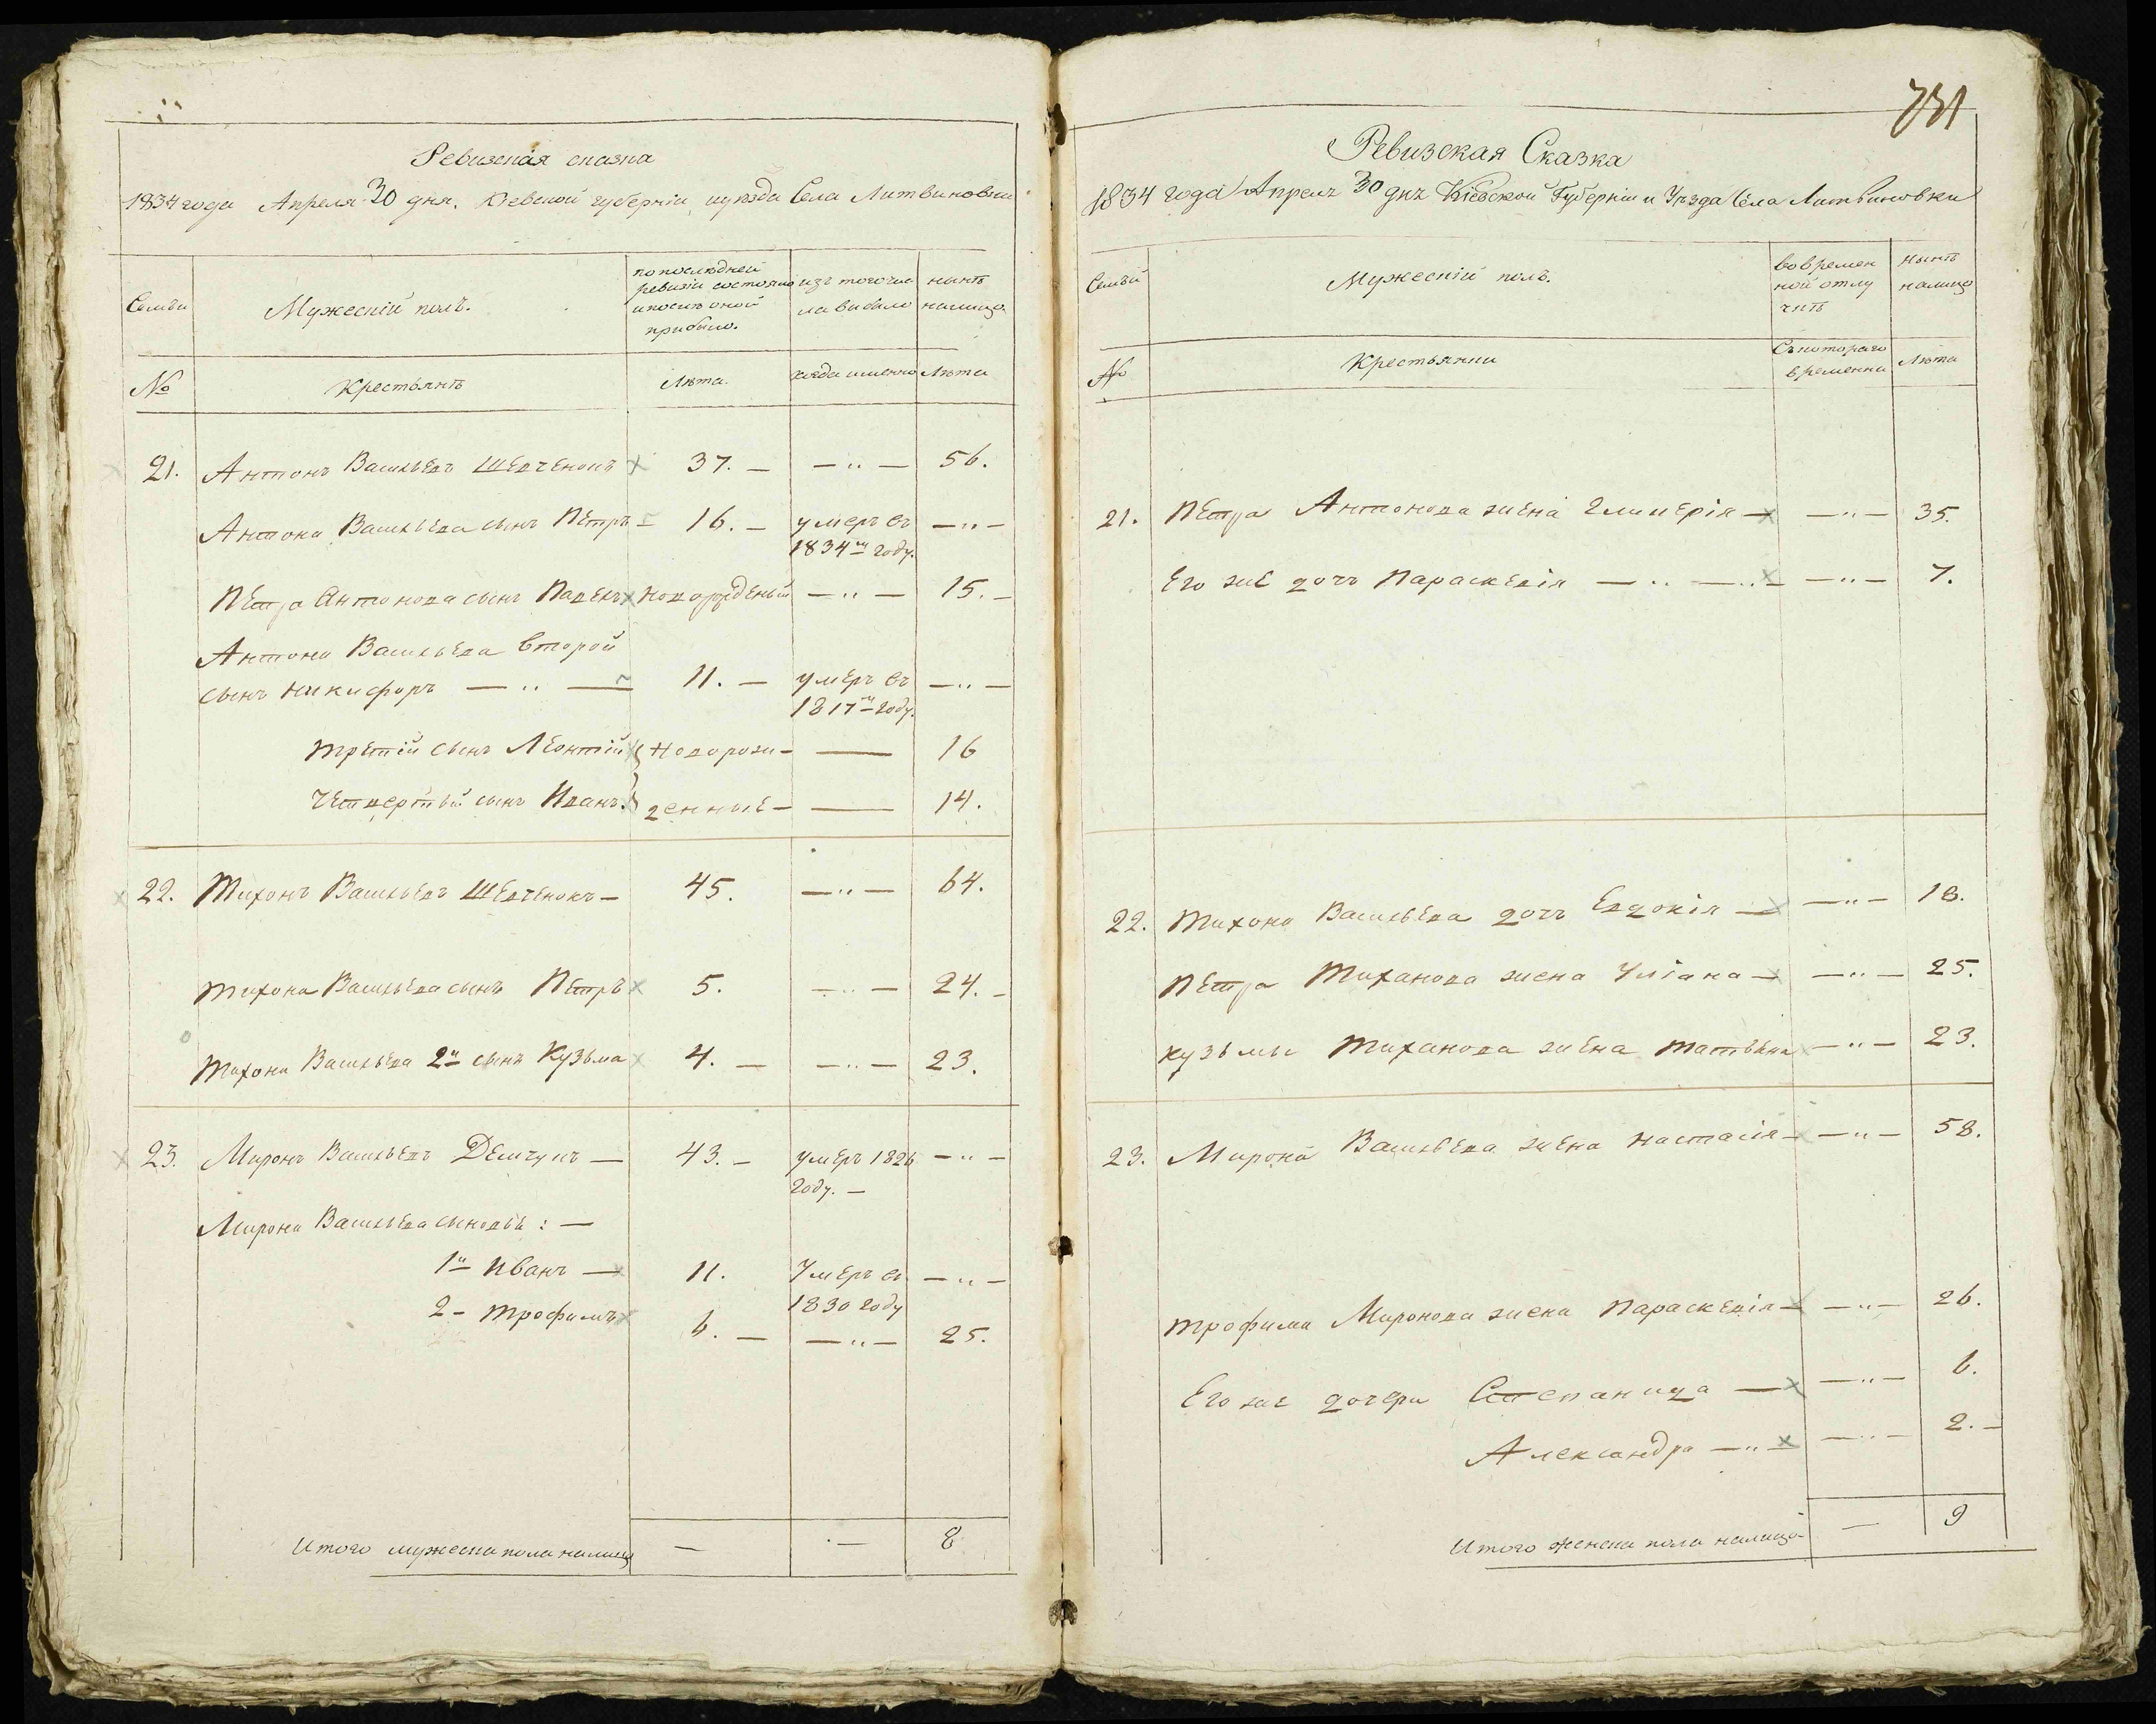 Ревизская сказка
1834 года Апреля 30 дня. Киевской губернии, и уезда Села Литвиновки
Семьи
Мужескій полъ.
по последней ревизіи состояло и после оной прибыло.
изъ того числа выбыло
ныне налицо
№
Крестьяне
Лета.
когда именно
Лета
21. Антонъ Васильевъ Шевченокъ 37. — — " — 56.
Антона Васильева сынъ Петръ 16. — умеръ въ — " —
1834м году.
Петра Антонова сынъ Павелъ новорожденый — " — 15. —
Антона Васильева второй
сынъ Никифоръ — " — 11. — умеръ въ — " —
1817м году.
третій сынъ Леонтій новорож- — 16
Четвертый сынъ Иванъ. денные — — 14.
22. Тихонъ Васильевъ Шевченокъ — 45. — " — 64.
Тихона Васильева сынъ Петръ 5. — " — 24. —
Тихона Васильева 2й сынъ Кузьма 4. — — " — 23.
23. Миронъ Васильевъ Демчукъ — 43. — умеръ 1826 — " —
году. —
Мирона Васильева сыновья : —
1й Иванъ — 11. Умеръ въ — " —
1830 году
2 - Трофимъ 6. — — " — 25.
Итого мужеска пола налицо — — 8
731
Ревизская Сказка
1834 года Апреля 30 дня Кіевской Губерніи и Уезда Села Литвиновки
Семьи
Мужескій полъ.
во временной отлучке
ныне налицо
№
Крестьянки
Съ котораго времени
Лета
21. Петра Антонова жена Гликерія — — " — 35.
Его же дочь Параскевія — " — " — — " — 7.
22. Тихона Васильева дочь Евдокія — — " — 18.
Петра Тиханова жена Уліана — — " — 25.
Кузьмы Тиханова жена Татьяна — " — 23.
23. Мирона Васильева жена Настасія — — " — 58.
Трофима Миронова жена Параскевія — — " — 26.
Его же дочери Степанида — — " — 6.
Александра — " — — " — 2. —
Итого женска пола налицо — 9